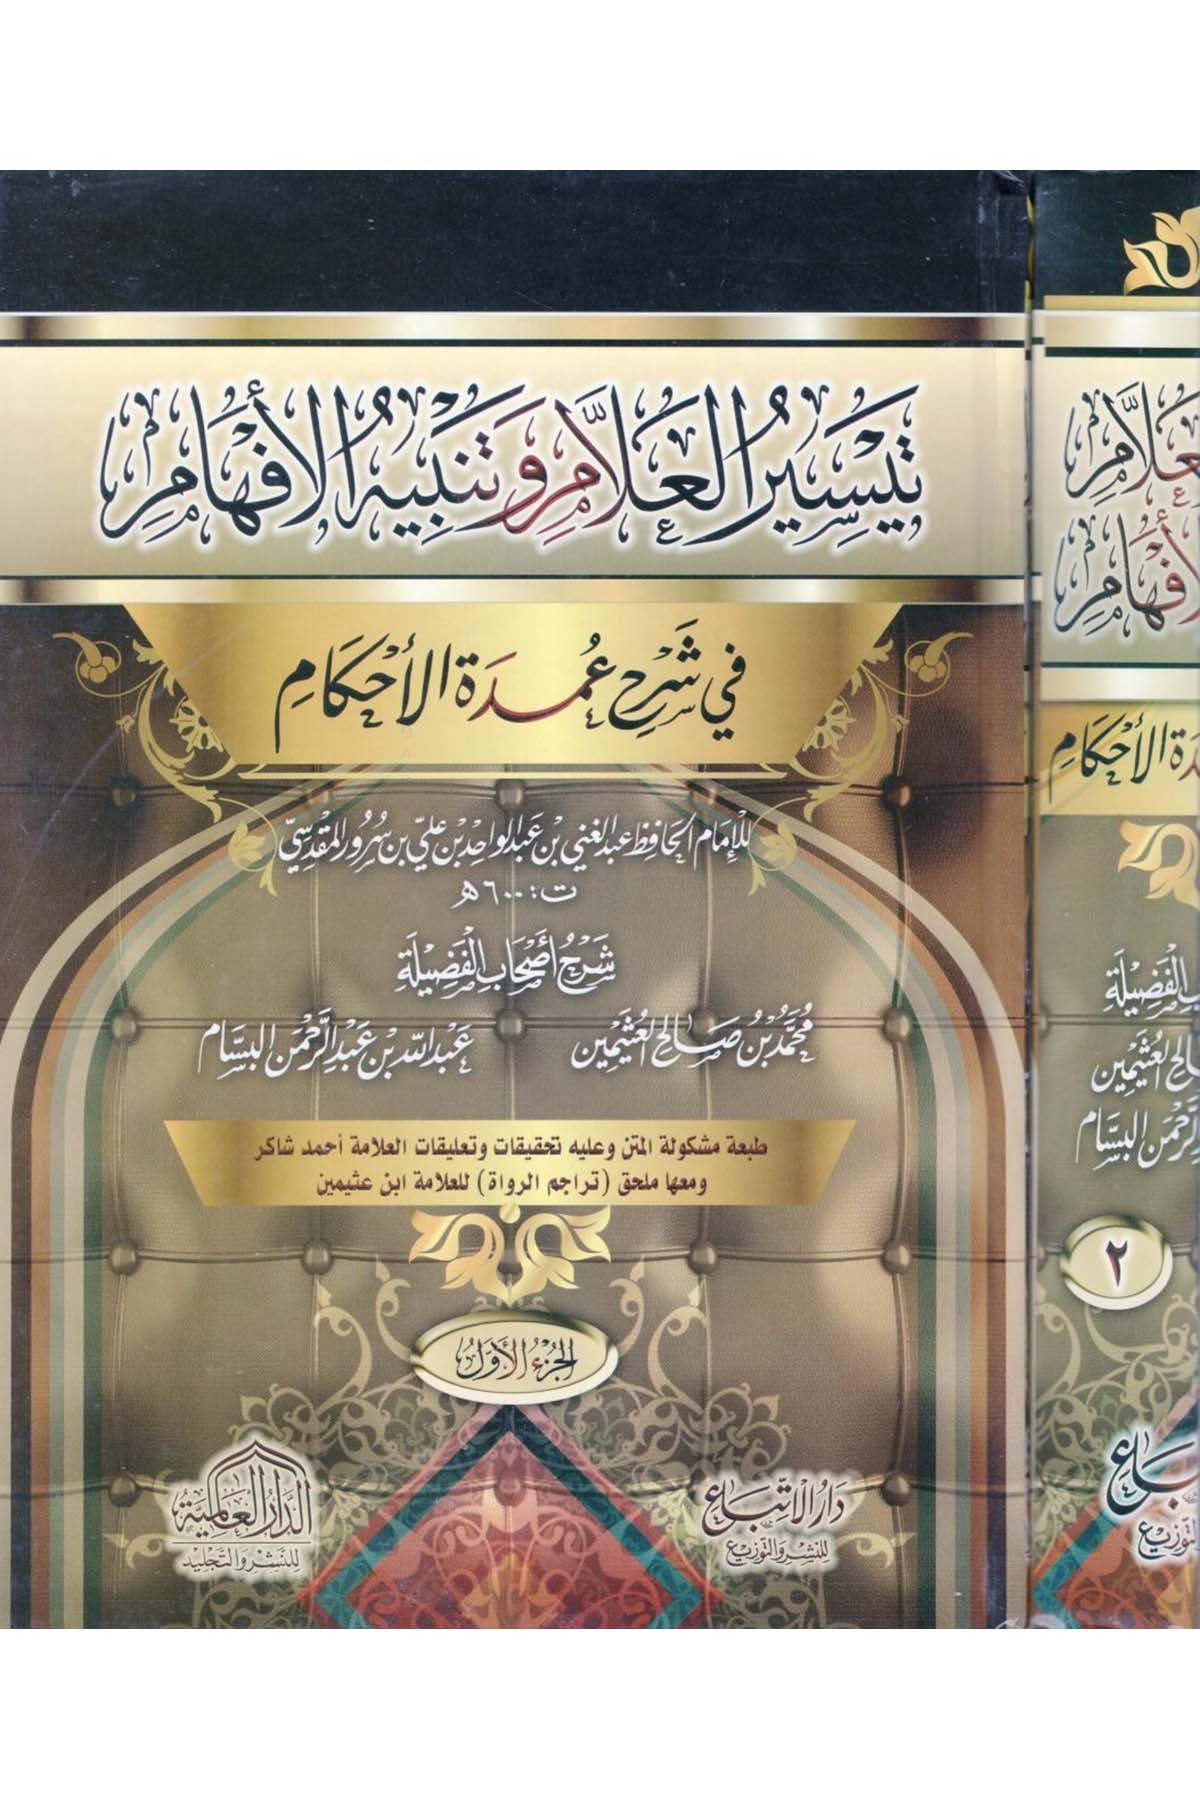 تيسير العلام وتنبيه الأفهام
في شرح عمدة الأحكام
للإمام الحافظ عبد الغني بن عبد الواحد بن علي بن سرور المقدسي
ت: ٦٠٠ هـ
شرح أصحاب الفضيلة
محمد بن صالح العثيمين
عبد الله بن عبد الرحمن البسام
طبعة مشكولة المتن وعليه تحقيقات وتعليقات العلامة أحمد شاكر
ومعها ملحق (تراجم الرواة) للعلامة ابن عثيمين
الجزء الأول
دار الاتباع
للنشر والتوزيع
الدار العالمية
للنشر والتجليد
٢